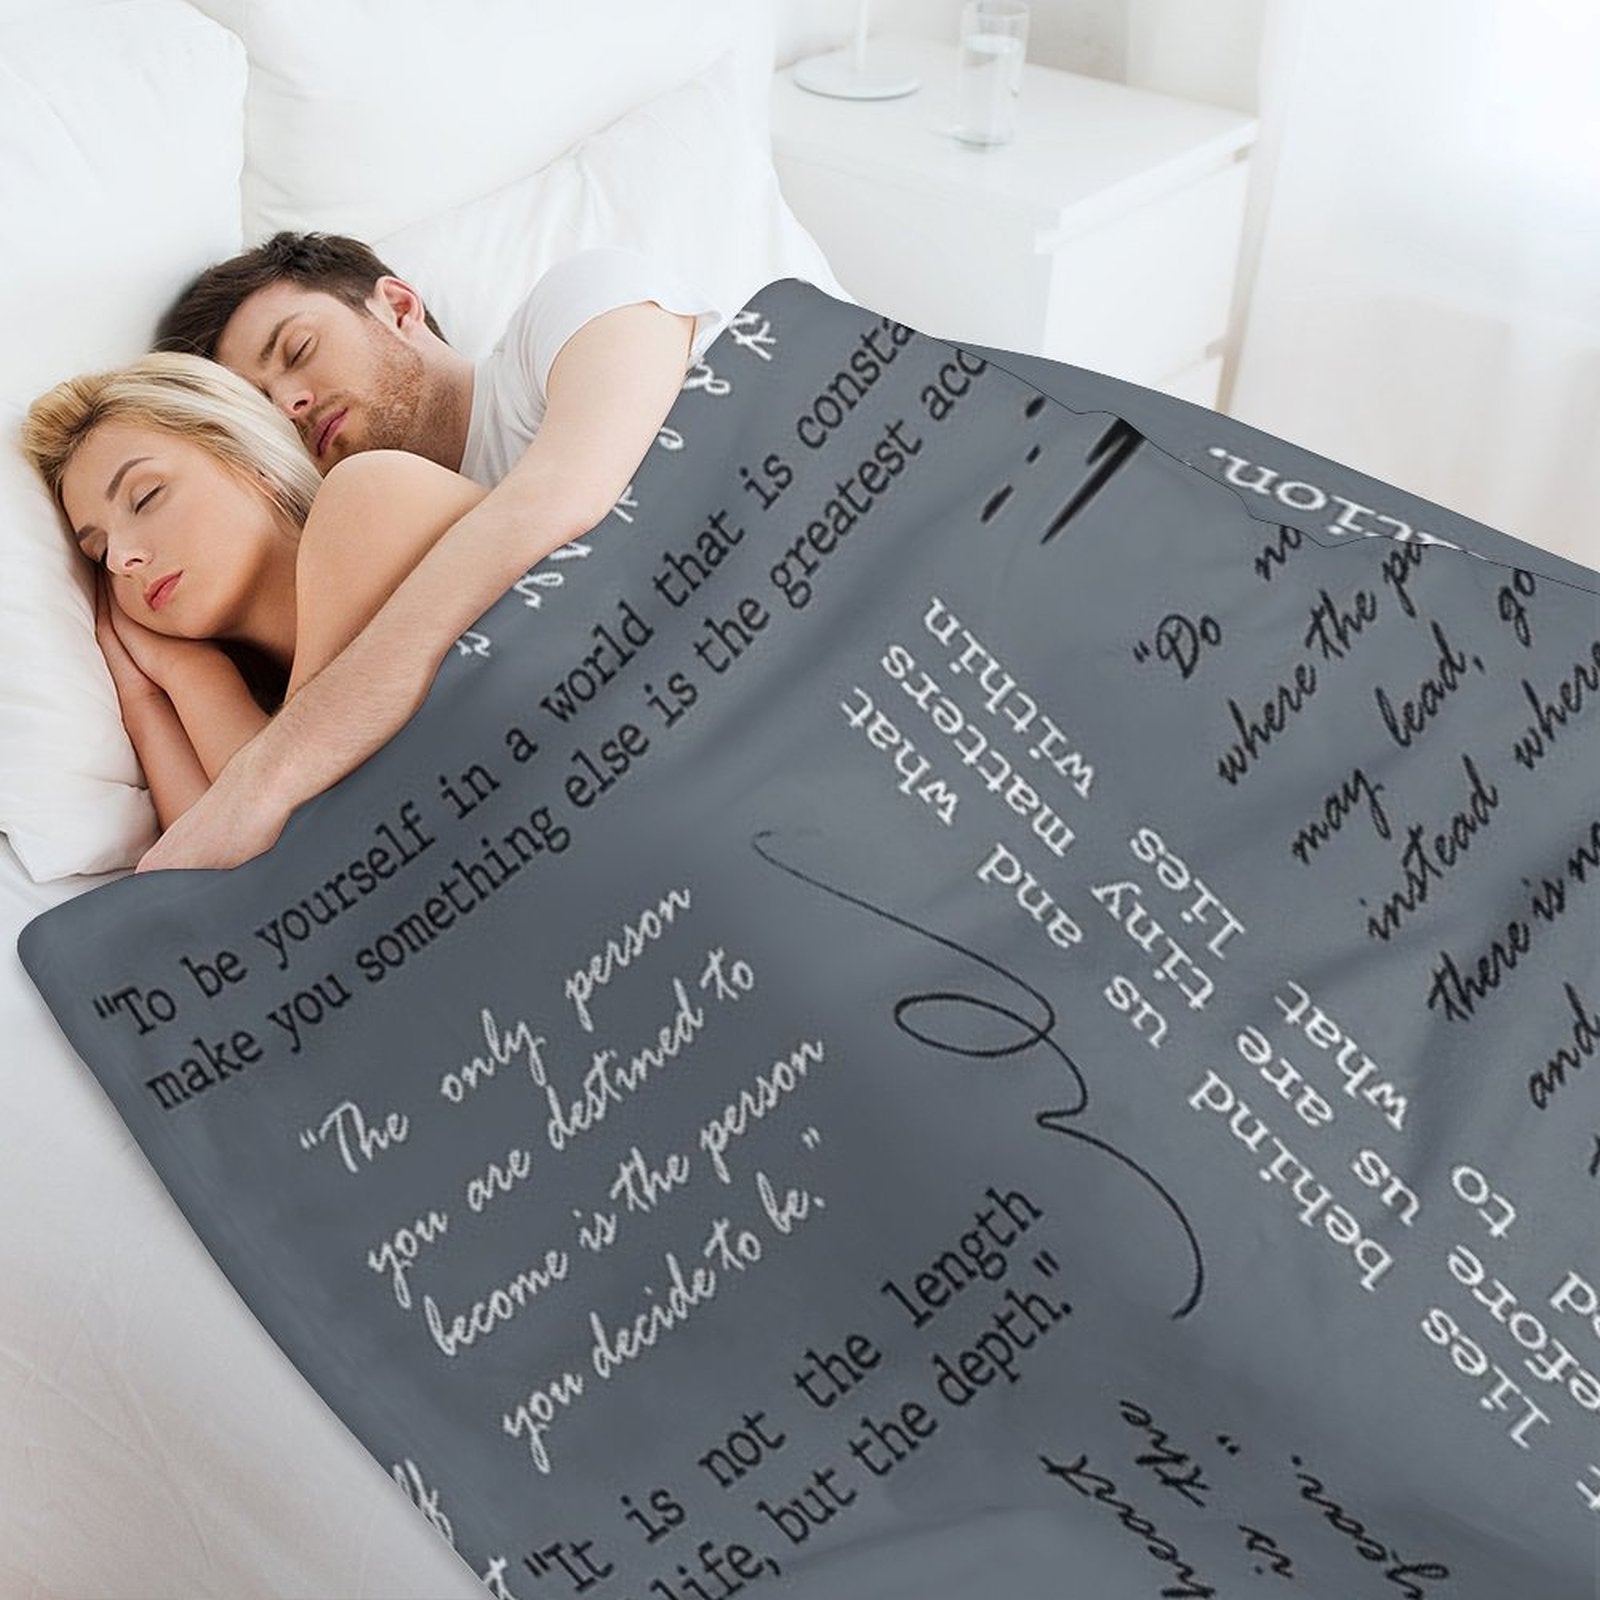 "To be yourself in a world that is consta
make you something else is the greatest acc
"The only person
you are destined to
become is the person
you decide to be."
"It is not the length
life, but the depth."
tion.
"Do no
where the pa
may lead, go
instead where
there is no
and
lies behind us and what
efore us are tiny matters
ed to what lies within
year."
is the
heart